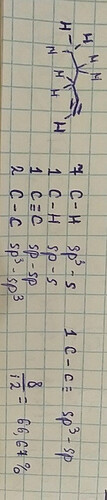 H H H H H H H H
7 C-H sp³-s
1 C-H sp-s
1 C≡C sp-sp
2 C-C sp³-sp³
1 C-C≡ sp³-sp
8/12 = 66,67%